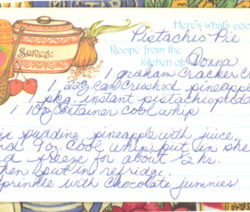 Pistachio Pie
Here's what's coo
Recipe from the
kitchen of Donna
Serves:
1 graham Cracker C
1 20oz can crushed pineapple
1 pkg. instant pistachio pudd
1 9oz container Cool whip
pudding, pineapple with juice,
9oz Cool whip, put in she
freeze for about 1/2 hr.
then put in refridge.
prinkle with chocolate jimmies